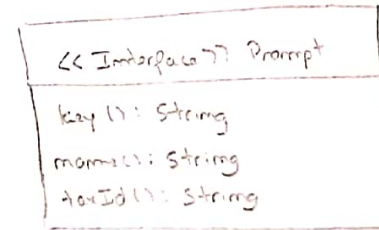 <<Interface>> Prompt
key(): String
name(): String
taxId(): String